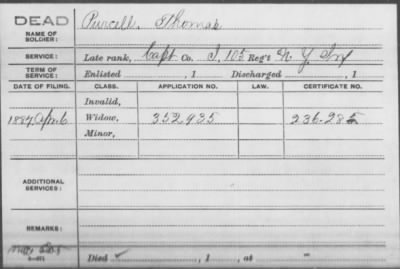 DEAD
NAME OF SOLDIER: Purcell, Thomas
SERVICE: Late rank, Capt Co. I, 105 Reg't N Y Inf
TERM OF SERVICE: Enlisted , 1 Discharged , 1
DATE OF FILING. CLASS. APPLICATION NO. LAW. CERTIFICATE NO.
Invalid,
1887 Apr. 6 Widow, 352935 236-285
Minor,
ADDITIONAL SERVICES:
REMARKS:
Died , 1 , at